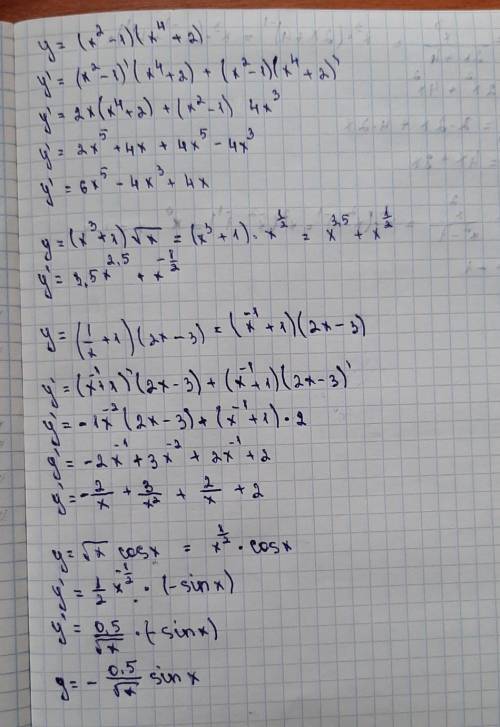 y = (x² - 1)(x⁴ + 2)
y' = (x² - 1)'(x⁴ + 2) + (x² - 1)(x⁴ + 2)'
y' = 2x(x⁴ + 2) + (x² - 1) 4x³
y' = 2x⁵ + 4x + 4x⁵ - 4x³
y' = 6x⁵ - 4x³ + 4x
y = (x³ + 1)√x = (x³ + 1) · x^(1/2) = x^3,5 + x^(1/2)
y' = 3,5x^2,5 + x^(-1/2)
y = (1/x + 1)(2x - 3) = (x⁻¹ + 1)(2x - 3)
y' = (x⁻¹ + 1)'(2x - 3) + (x⁻¹ + 1)(2x - 3)'
y' = -1x⁻²(2x - 3) + (x⁻¹ + 1) · 2
y' = -2x⁻¹ + 3x⁻² + 2x⁻¹ + 2
y' = -2/x + 3/x² + 2/x + 2
y = √x cosx = x^(1/2) · cosx
y' = 1/2 x^(-1/2) · (-sinx)
y' = 0,5/√x · (-sinx)
y = - 0,5/√x sinx